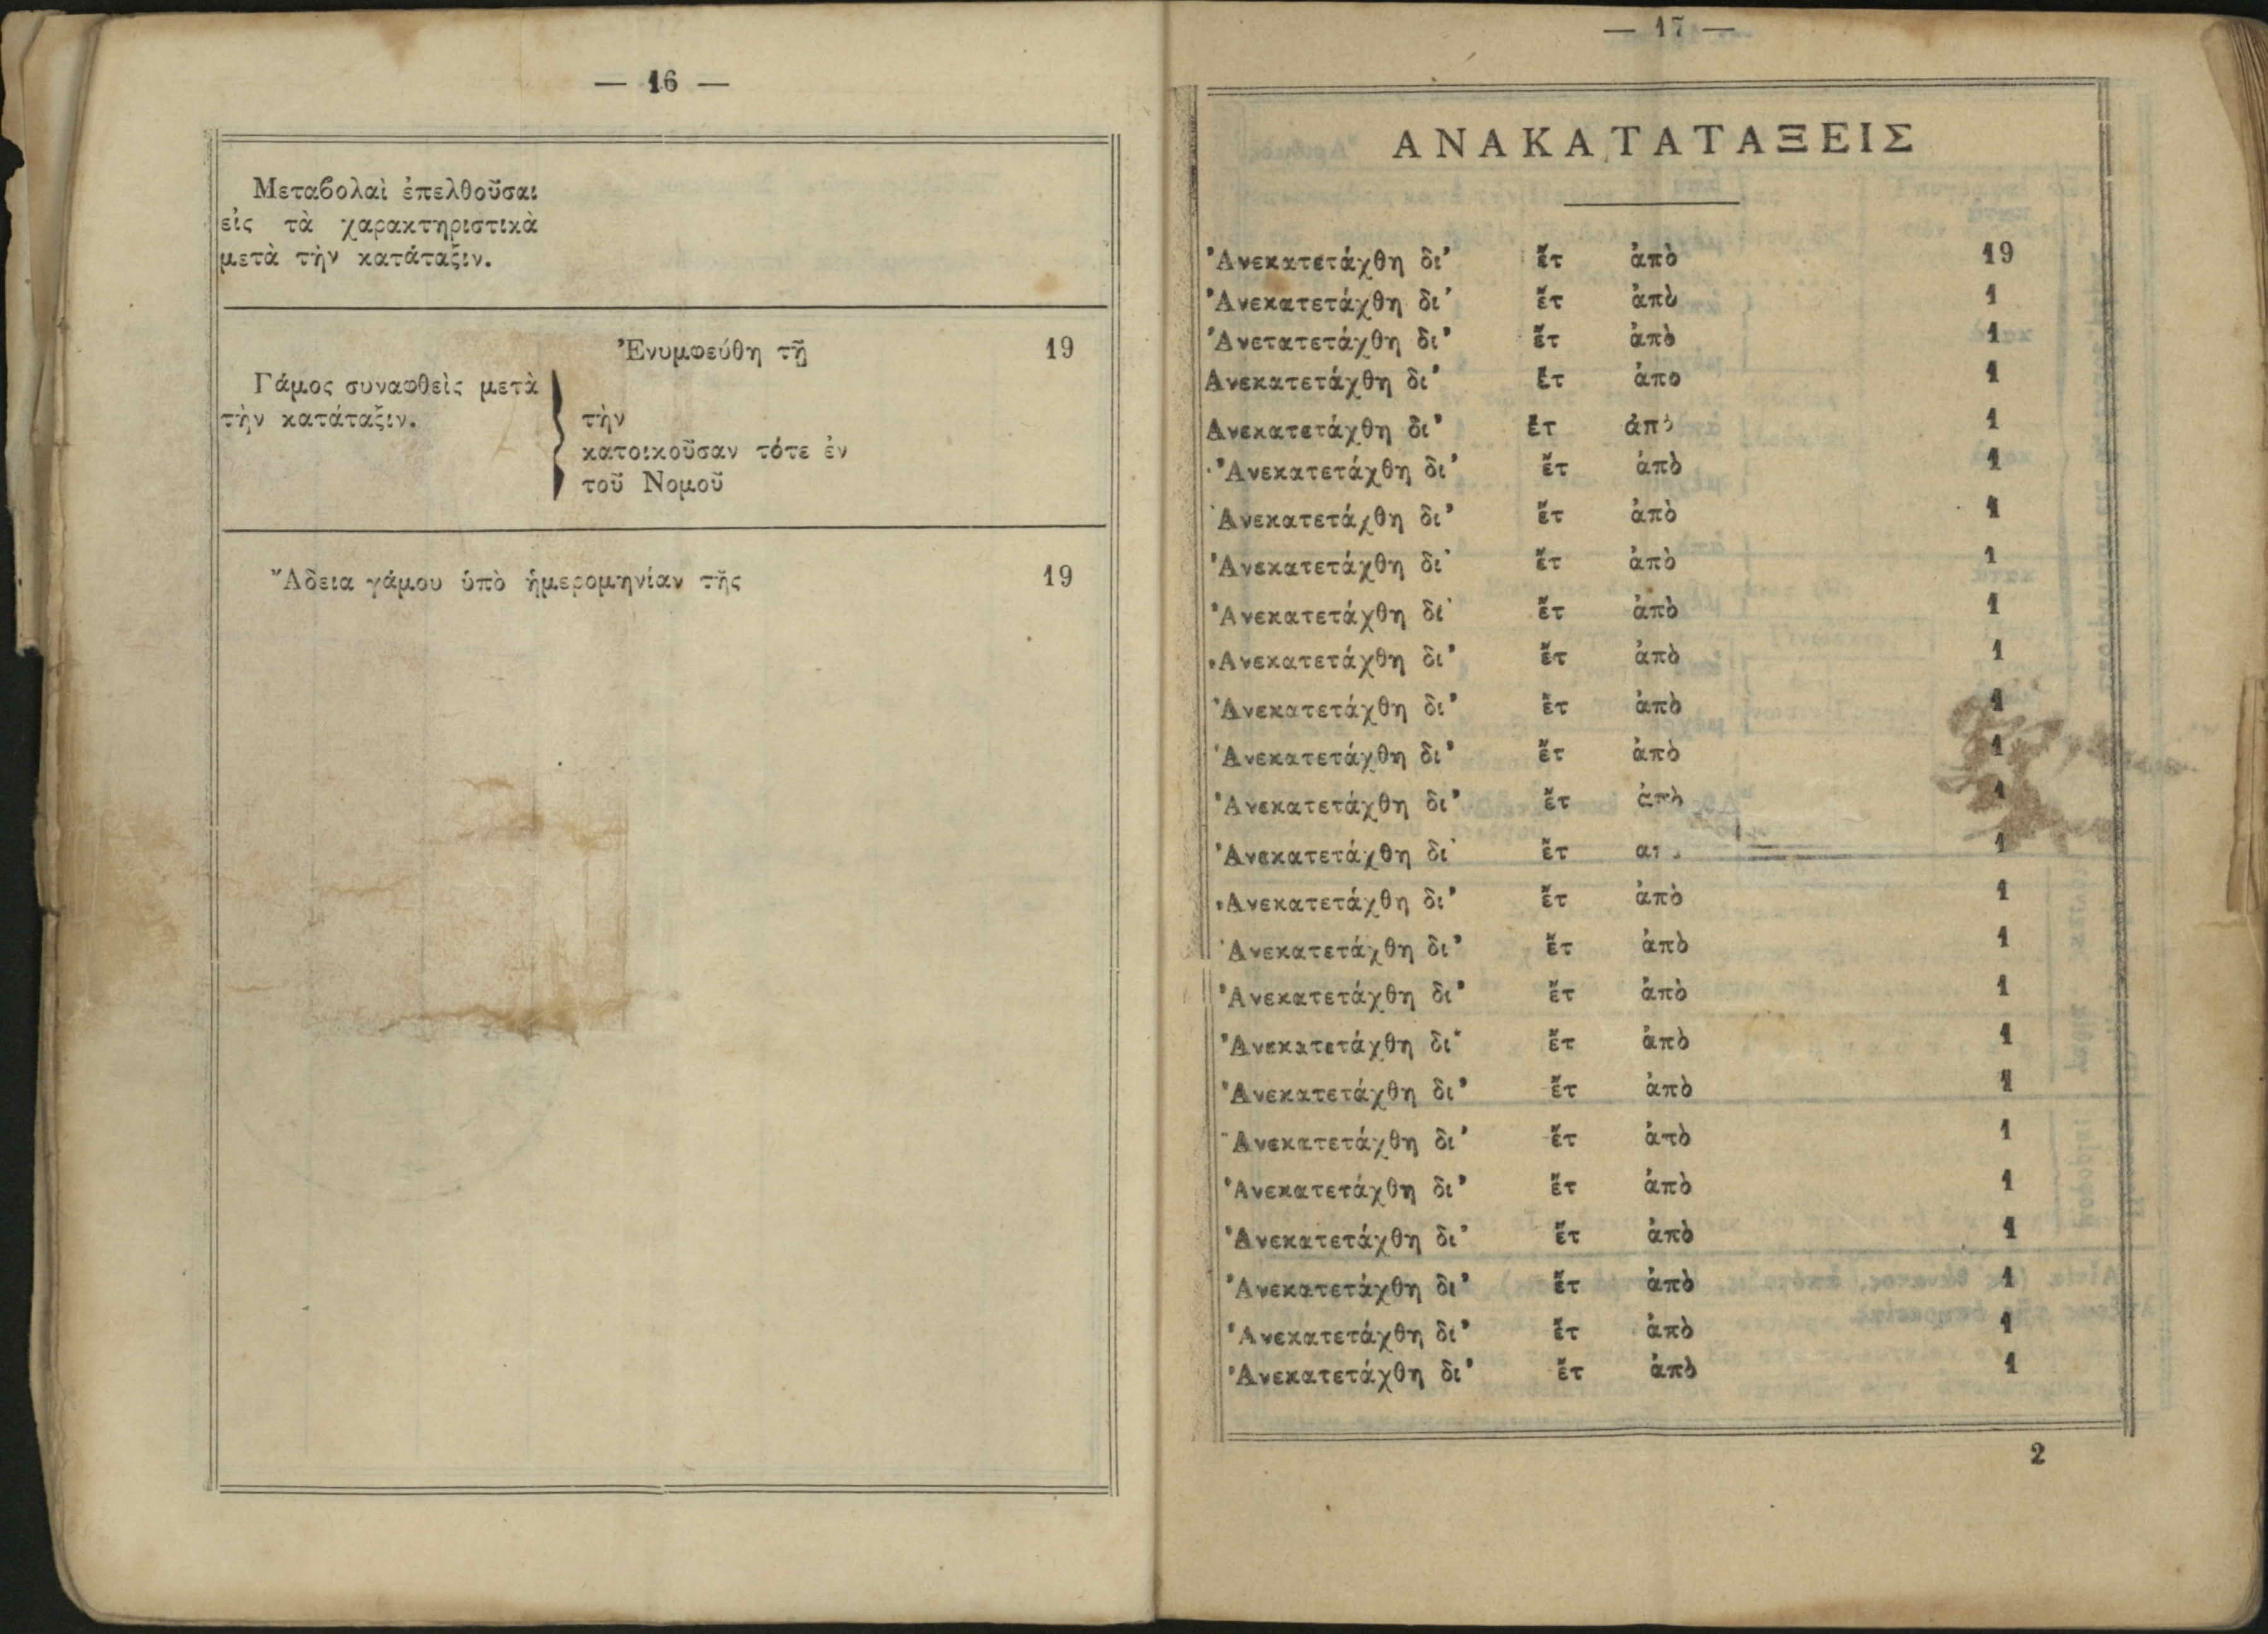 — 16 —
Μεταβολαὶ ἐπελθοῦσαι
εἰς τὰ χαρακτηριστικὰ
μετὰ τὴν κατάταξιν.
Ἐνυμφεύθη τῇ 19
Γάμος συναφθεὶς μετὰ
τὴν κατάταξιν.
τὴν
κατοικοῦσαν τότε ἐν
τοῦ Νομοῦ
Ἄδεια γάμου ὑπὸ ἡμερομηνίαν τῆς 19
— 17 —
ΑΝΑΚΑΤΑΤΑΞΕΙΣ
Ἀνεκατετάχθη δι' ἔτ ἀπὸ 19
Ἀνεκατετάχθη δι' ἔτ ἀπὸ 1
Ἀνετατετάχθη δι' ἔτ ἀπὸ 1
Ἀνεκατετάχθη δι' ἔτ ἀπὸ 1
Ἀνεκατετάχθη δι' ἔτ ἀπὸ 1
Ἀνεκατετάχθη δι' ἔτ ἀπὸ 1
Ἀνεκατετάχθη δι' ἔτ ἀπὸ 1
Ἀνεκατετάχθη δι' ἔτ ἀπὸ 1
Ἀνεκατετάχθη δι' ἔτ ἀπὸ 1
Ἀνεκατετάχθη δι' ἔτ ἀπὸ 1
Ἀνεκατετάχθη δι' ἔτ ἀπὸ 1
Ἀνεκατετάχθη δι' ἔτ ἀπὸ 1
Ἀνεκατετάχθη δι' ἔτ ἀπὸ 1
Ἀνεκατετάχθη δι' ἔτ 1
Ἀνεκατετάχθη δι' ἔτ ἀπὸ 1
Ἀνεκατετάχθη δι' ἔτ ἀπὸ 1
Ἀνεκατετάχθη δι' ἔτ ἀπὸ 1
Ἀνεκατετάχθη δι' ἔτ ἀπὸ 1
Ἀνεκατετάχθη δι' ἔτ ἀπὸ 1
Ἀνεκατετάχθη δι' ἔτ ἀπὸ 1
Ἀνεκατετάχθη δι' ἔτ ἀπὸ 1
Ἀνεκατετάχθη δι' ἔτ ἀπὸ 1
Ἀνεκατετάχθη δι' ἔτ ἀπὸ 1
Ἀνεκατετάχθη δι' ἔτ ἀπὸ 1
Ἀνεκατετάχθη δι' ἔτ ἀπὸ 1
2